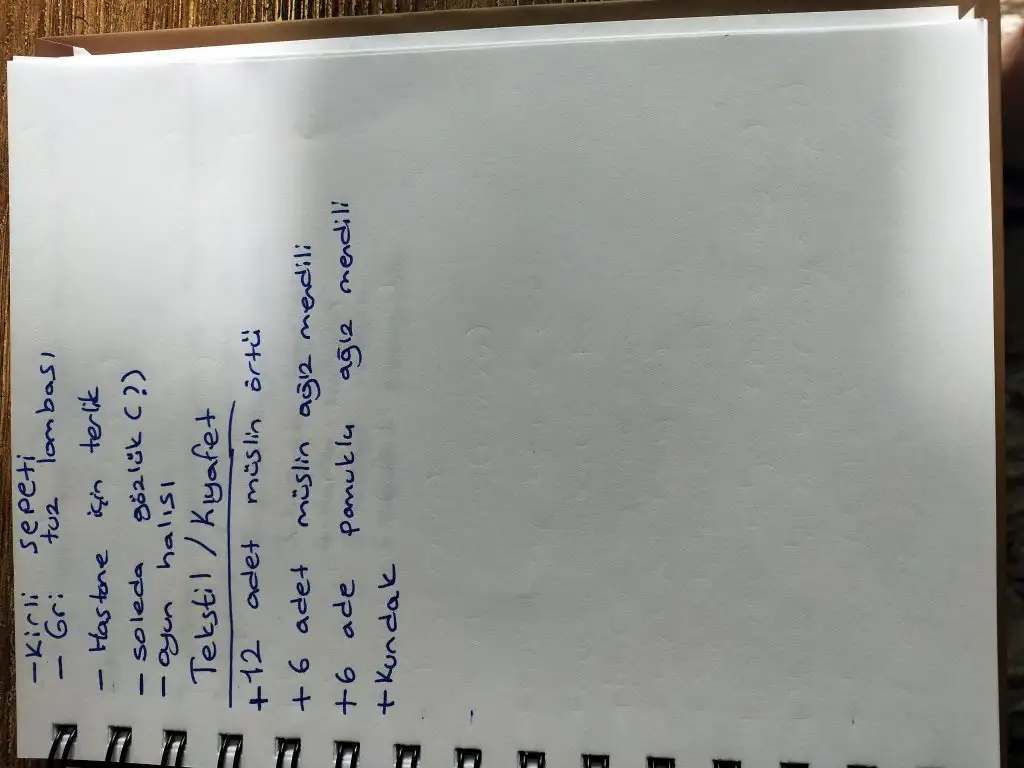 - Kirli sepeti
- Gri tuz lambası
- Hastane için terlik
- soleda gözlük (?)
- oyun halısı
Tekstil / Kıyafet
+ 12 adet müslin örtü
+ 6 adet müslin ağız mendili
+ 6 ade pamuklu ağız mendili
+ Kundak
-